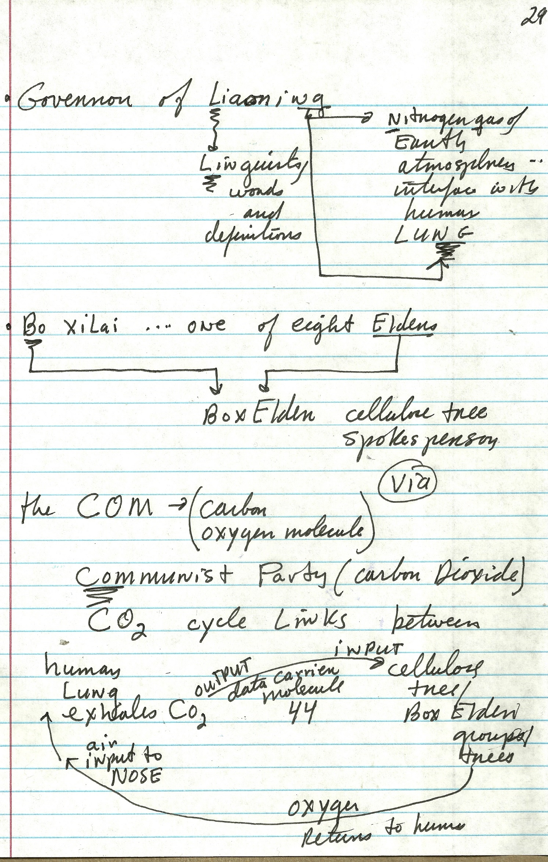 29
• Governor of Liaoning
Nitrogen gas of
Earth
Linguists/ atmosphere ..
words interface with
and human
definitions LUNG
• Bo xiLai .... one of eight Elders
Box Elder cellulose tree
spokesperson
via
the COM → (carbon
oxygen molecule)
Communist Party (carbon Dioxide)
CO2 cycle Links between
human OUTPUT INPUT cellulose
Lung data carrier tree/
exhales CO2 molecule 44 Box Elder
groups/
air trees
input to
NOSE
oxygen
Returns to human